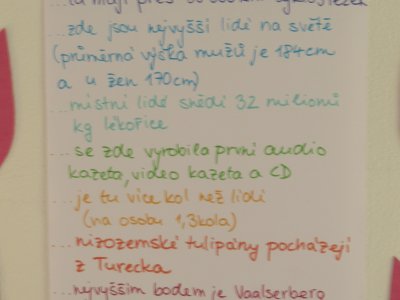 ...zde jsou nejvyšší lidé na světě
(průměrná výška mužů je 184cm
a u žen 170cm)
...místní lidé snědí 32 milionů
kg lékořice
...se zde vyrobila první audio
kazeta, video kazeta a CD
...je tu více kol než lidí
(na osobu 1,3kola)
...nizozemské tulipány pocházejí
z Turecka
...nejvyšším bodem je Vaalserberg